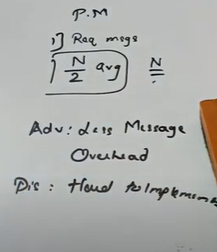 P.M
1) Req msgs
N/2 avg N
Adv: Less Message
Overhead
Dis: Hard to Implement